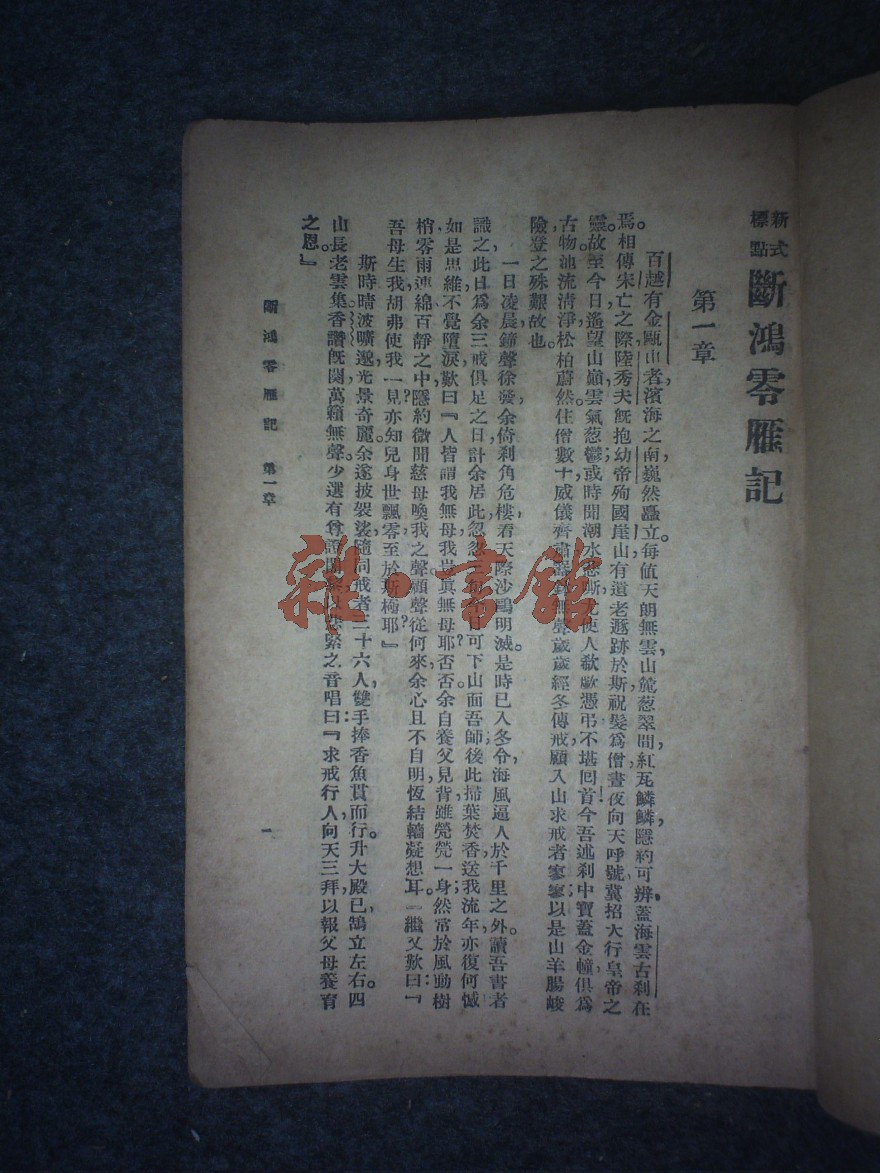 新式
標點
斷鴻零雁記
第一章
百越有金甌山者，濱海之南，巍然矗立。每值天朗無雲，山麓葱翠間，紅瓦鱗鱗，隱約可辨，蓋海雲古剎在
焉。相傳宋亡之際，陸秀夫旣抱幼帝殉國崖山，有遺老遯跡於斯，祝髮爲僧，晝夜向天呼號，冀招大行皇帝之
靈。故至今日，遙望山嶺，雲氣葱鬱；或時聞潮水悲嘶，尤使人欷歔憑弔，不堪回首！今吾述剎中寶蓋金幢，俱爲
古物。池流清淨，松柏蔚然。住僧數十，威儀齊肅，器鉢無聲。歲歲經冬傳戒，顧入山求戒者寥寥；以是山羊腸峻
險，登之殊艱故也。
一日凌晨，鐘聲徐發，余倚剎角危樓，看天際沙鷗明滅。是時已入冬令，海風逼人於千里之外。讀吾書者
識之，此日爲余三戒俱足之日。計余居此忽忽三旬，今日可下山面吾師。後此掃葉焚香，送我流年，亦復何憾！
如是思維，不覺墮淚，歎曰：『人皆謂我無母，我豈眞無母耶？否，否。余自養父見背，雖煢煢一身；然常於風動樹
梢，零雨連綿，百靜之中，隱約微聞慈母喚我之聲。顧聲從何來，余心且不自明，恆結轖凝想耳。』繼又歎曰：『
吾母生我，胡弗使我一見？亦知兒身世飄零，至於斯極耶？』
斯時晴波曠邈，光景奇麗。余遂披袈裟，隨同戒者三十六人，雙手捧香魚貫而行。升大殿已，鵠立左右。四
山長老雲集。香讚旣闋，萬籟無聲。少選，有尊證闍黎以悲緊之音唱曰：『求戒行人，向天三拜，以報父母養育
之恩。』
斷鴻零雁記　第一章
一
雜·書館